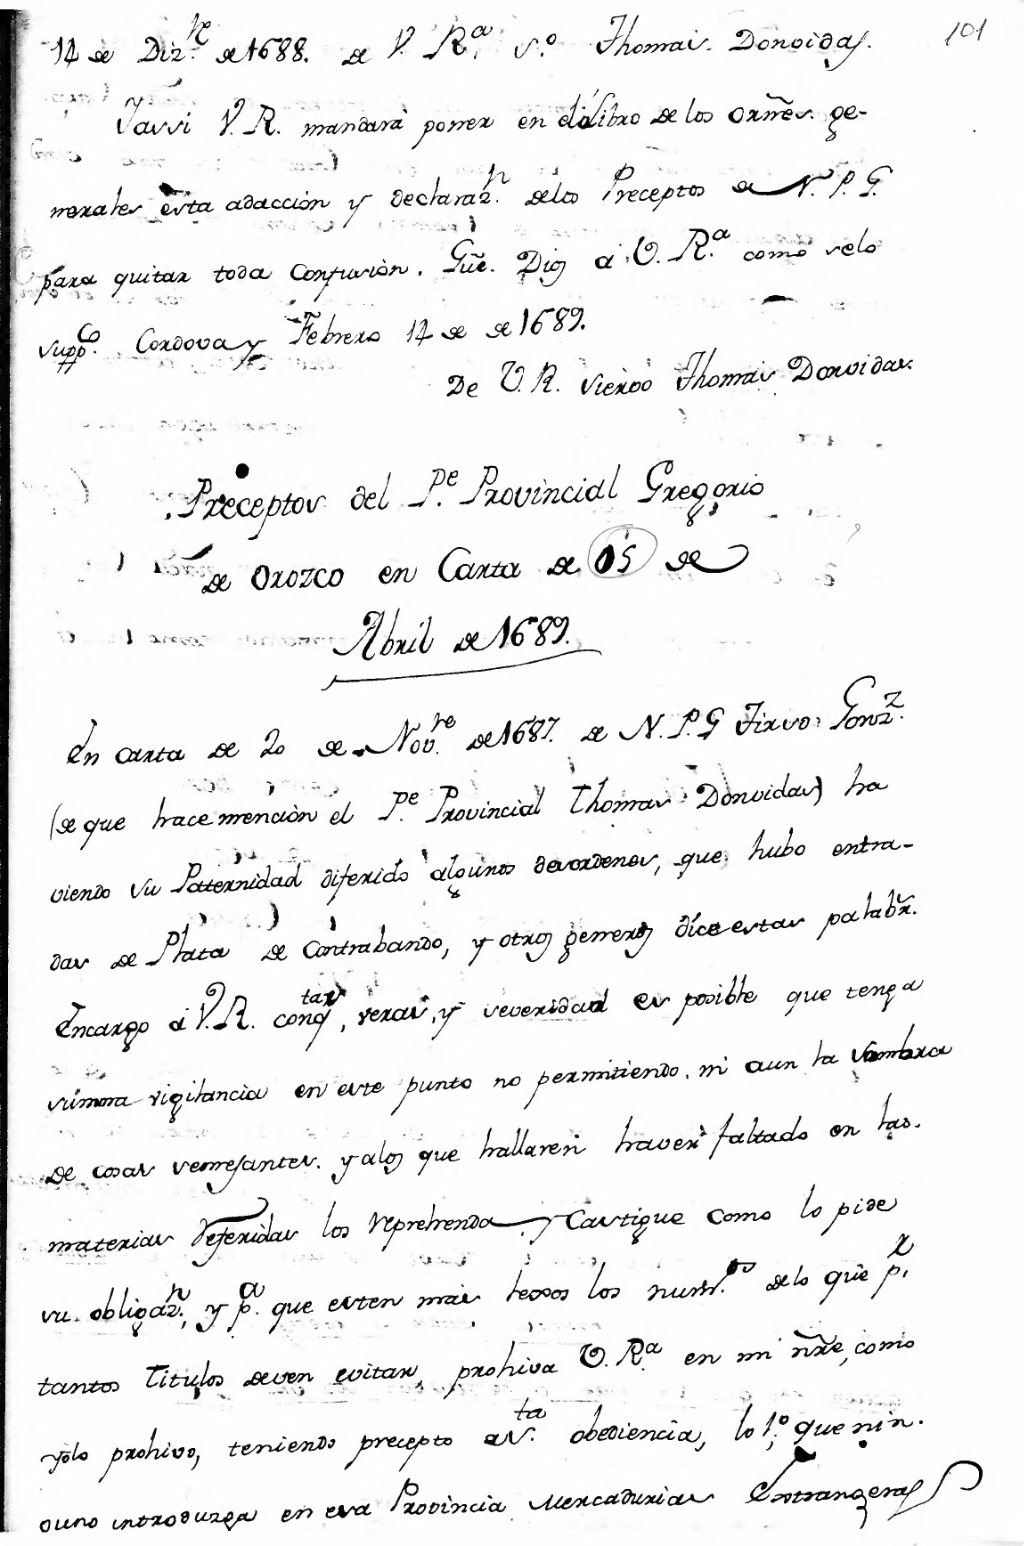 101
14 de Diz.re de 1688. de V. Ra. s.o Thomas Donvidas.
Yassi V. R. mandarà poner en el Libro de los orñes ge-
nerales esta adacción y declaraz.n delos Preceptos de N. P. G.
para quitar toda confusiòn. Gũe. Dios à V. R.a como selo
supp.co Cordova y Febrero 14 de de 1689.
De V. R. siervo Thomas Donvidas.
Preceptos del P.e Provincial Gregorio
de Orozco en Carta de 05 de
Abril de 1689.
En carta de 20 de Nov.re de 1687. de N. P. G Tirso Gonz.z
(de que hace menciòn el P.e Provincial Thomas Donvidas) ha
viendo su Paternidad diferido algunos desordenes, que hubo entra-
das de Plata de Contrabando, y otros generos dice estas palabr̃.
Encargo à V. R. conq.tas veras, y severidad es posible que tenga
summa vigilancia en este punto no permitiendo ni aun la sombra
de cosas semejantes. y alos que hallaren haver faltado en las
materias referidas los reprehenda y castigue como lo pide
su obligaz.n, y p.a que esten mas lexos los nuest.os de lo que p.r
tantos titulos deven evitar, prohiva V. R.a en mi ñre, como
yolo prohivo, teniendo precepto de s.ta obediencia, lo 1.o que nin.
guno introdurga en esa Provincia Mercadurias Extrangeras